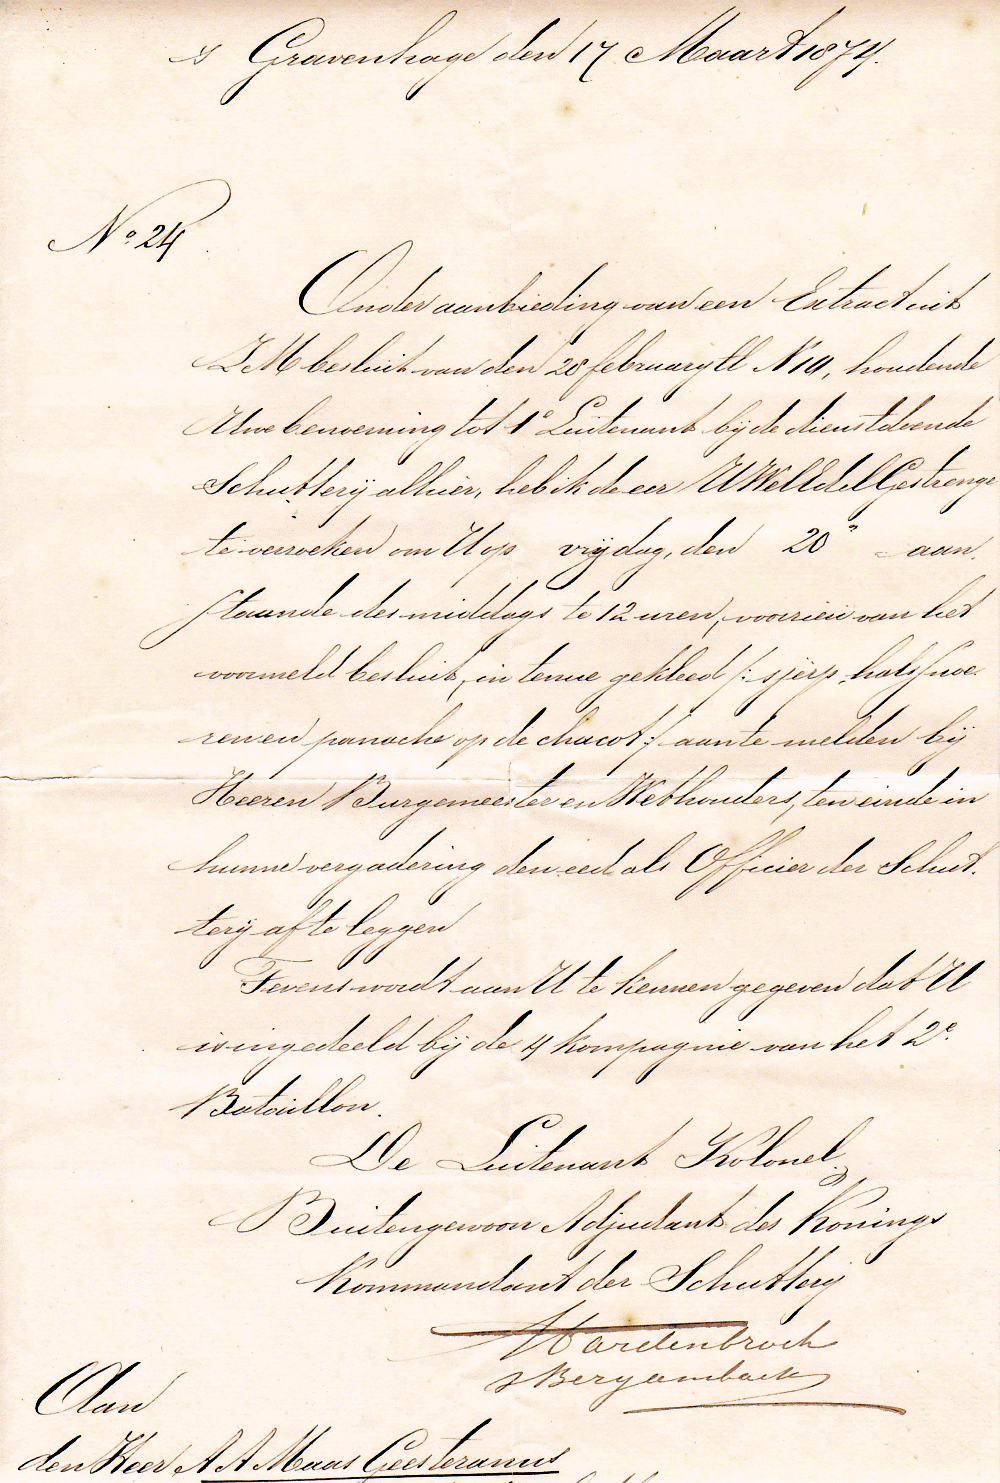 s Gravenhage den 17 Maart 1874.
No 24
Onder aanbieding van een Extract uit
ZM besluit van den 28 february ll N 14, houdende
Uwe benoeming tot 1e Luitenant bij de dienstdoende
Schutterij alhier, heb ik de eer UWelEdelGestrenge
te verzoeken om U op vrijdag, den 20n aan
staande des middags te 12 uren, voorzien van het
voormeld besluit, in tenue gekleed /: sjerp, hals
ren en panache op de chacot :/ aan te melden bij
Heeren Burgemeester en Wethouders, ten einde in
hunne vergadering den eed als Officier der Schut.
terij af te leggen
Tevens wordt aan U te kennen gegeven dat U
is ingedeeld bij de 4 kompagnie van het 2e
Bataillon.
De Luitenant Kolonel,
Buitengewoon Adjudant des Konings
Kommandant der Schutterij
Hardenbroek
s Bergambacht
Aan
den Heer A A Maas Geesteranus